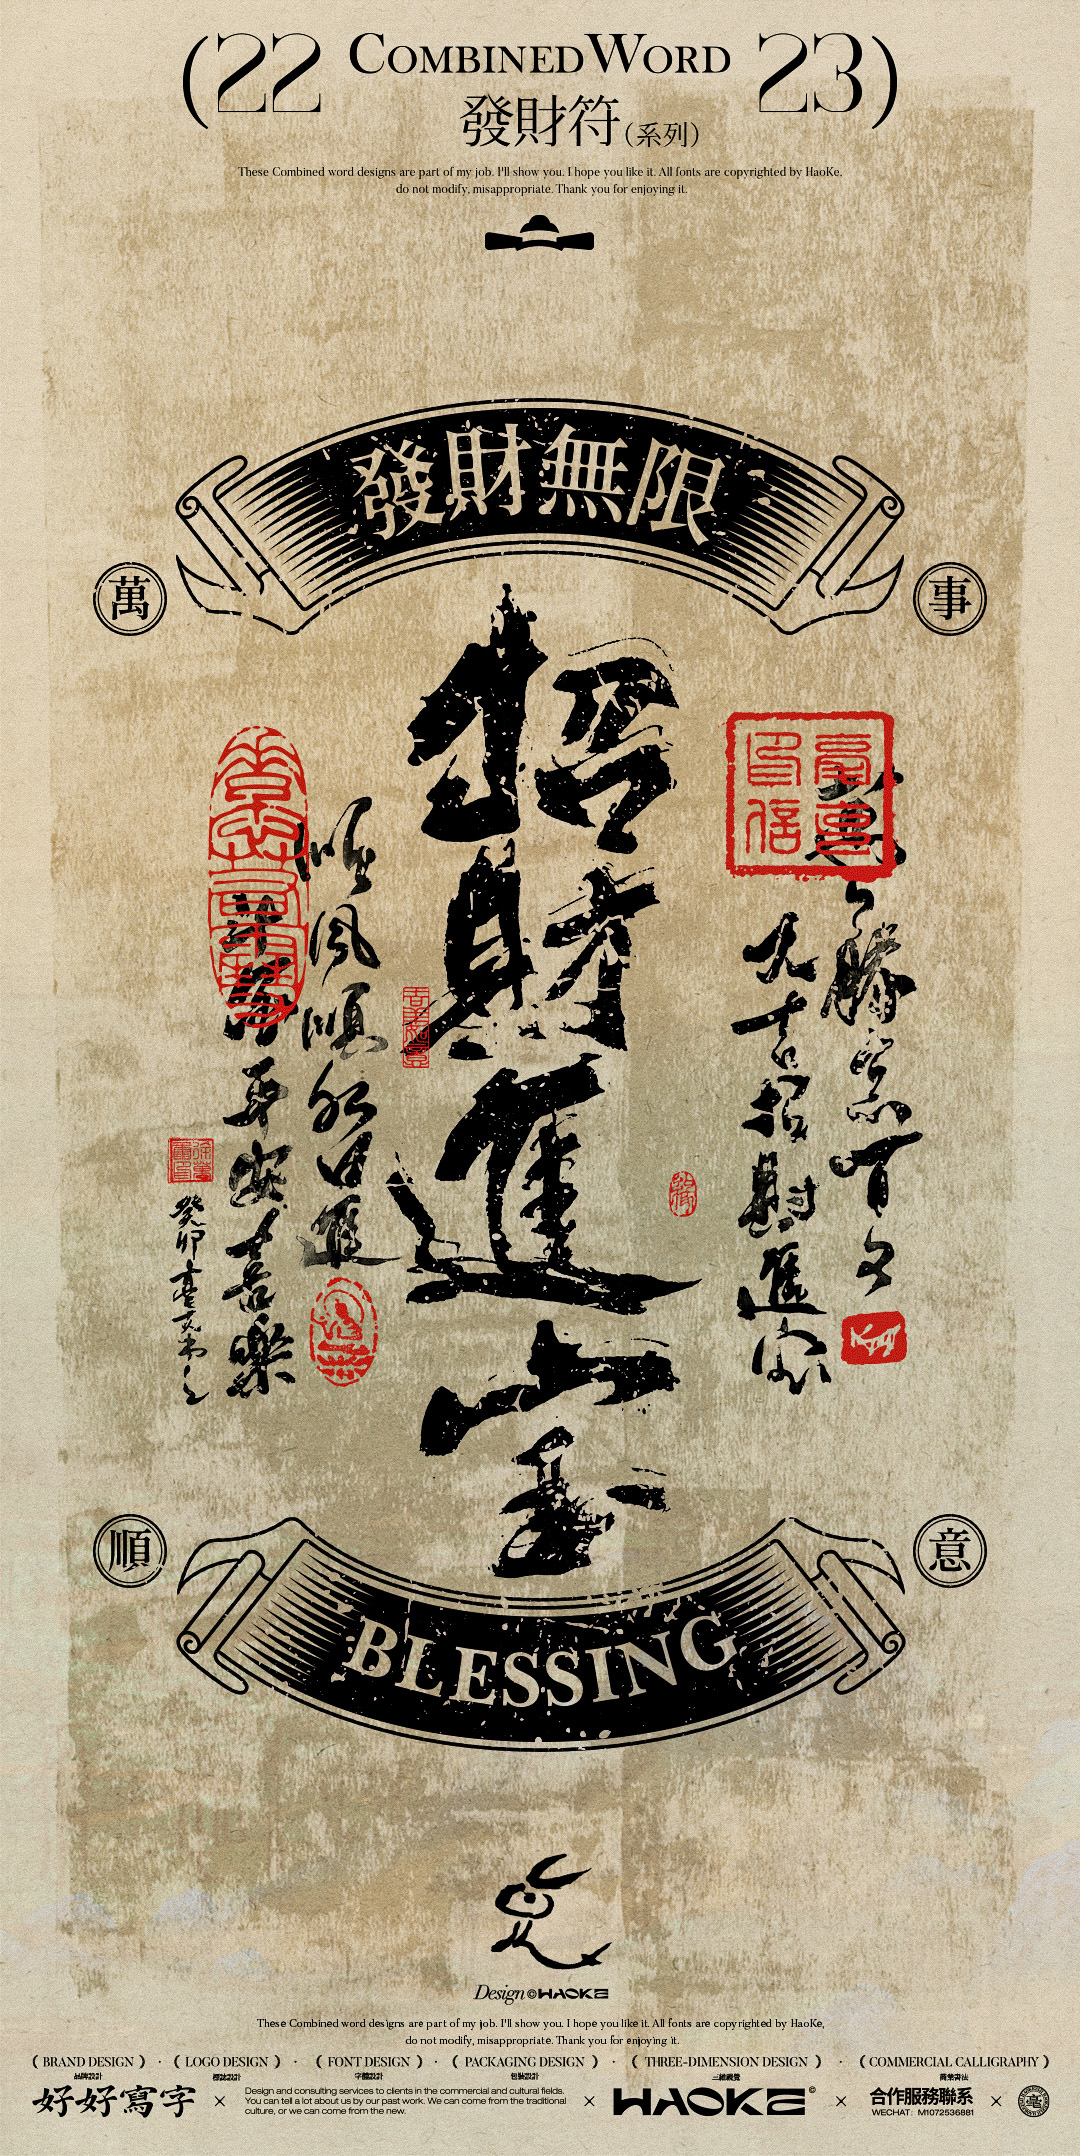 (22 COMBINED WORD 23)
發財符(系列)
These Combined word designs are part of my job. I'll show you. I hope you like it. All fonts are copyrighted by HaoKe,
do not modify, misappropriate. Thank you for enjoying it.
發財無限
萬 事
招財進寶
大吉招財進寶
順風順水日進
平安喜樂
癸卯
順 意
BLESSING
Design©HAOKE
These Combined word designs are part of my job. I'll show you. I hope you like it. All fonts are copyrighted by HaoKe,
do not modify, misappropriate. Thank you for enjoying it.
( BRAND DESIGN ) · ( LOGO DESIGN ) · ( FONT DESIGN ) · ( PACKAGING DESIGN ) · ( THREE-DIMENSION DESIGN ) · ( COMMERCIAL CALLIGRAPHY )
品牌設計 標誌設計 字體設計 包裝設計 三維視覺 商業書法
好好寫字 ×
Design and consulting services to clients in the commercial and cultural fields.
You can tell a lot about us by our past work. We can come from the traditional
culture, or we can come from the new.
× HAOKE© × 合作服務聯系
WECHAT: M1072536881
× 毫